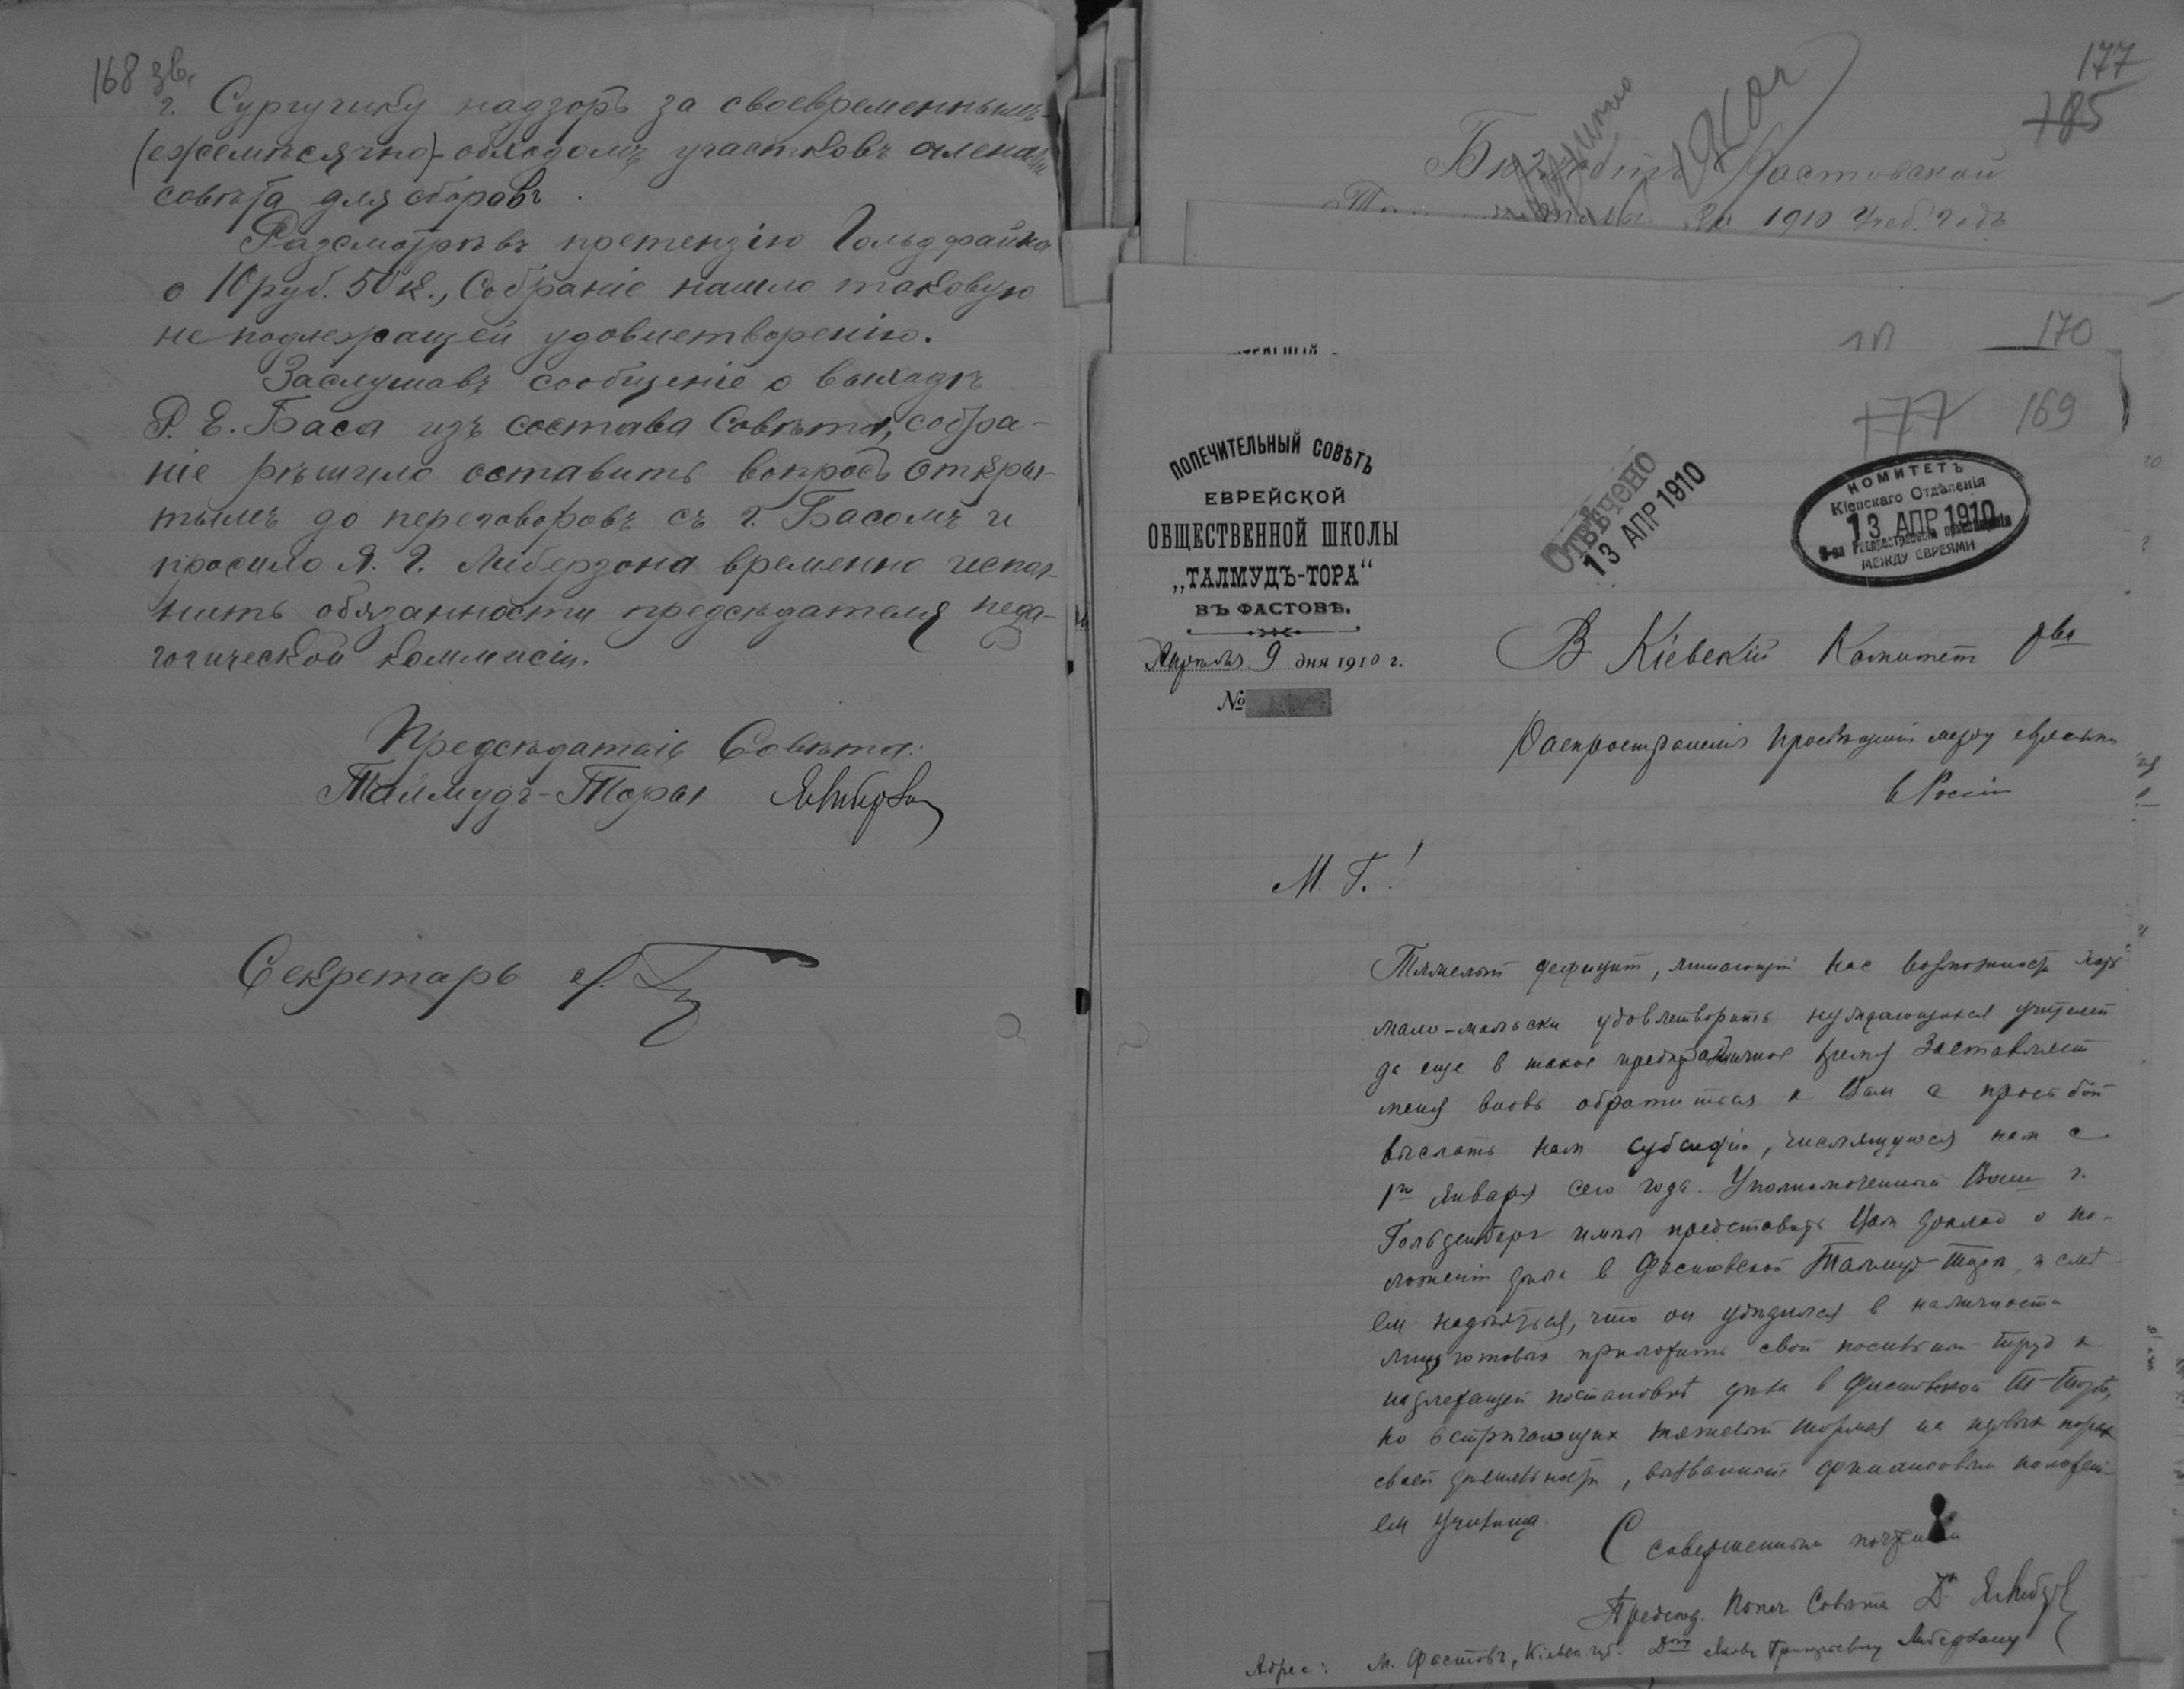 168 зв.
г. Сургучику надзоръ за своевременнымъ
(ежемѣсячно) обходомъ участковъ членами
совѣта для сборовъ.
Разсмотрѣвъ претензію Гольдфайна
о 10 руб. 50 к., Собраніе нашло таковую
не подлежащей удовлетворенію.
Заслушавъ сообщеніе о выходѣ
Р. Е. Баса изъ состава Совѣта, собра-
ніе рѣшило оставить вопросъ откры-
тымъ до переговоровъ съ г. Басомъ и
просило Я. Г. Либерзона временно испол-
нить обязанности предсѣдателя педа-
гогической коммисіи.
Предсѣдатель Совѣта
Талмудъ-Торы ЯЛиберзон
Секретарь
177
185
Фастовской
за 1910 учеб. годъ
170
177 169
ПОПЕЧИТЕЛЬНЫЙ СОВѢТЪ
ЕВРЕЙСКОЙ
ОБЩЕСТВЕННОЙ ШКОЛЫ
„ТАЛМУДЪ-ТОРА“
ВЪ ФАСТОВѢ.
Апрѣля 9 дня 1910 г.
№
Отвѣчено
13 АПР 1910
КОМИТЕТЪ
Кіевскаго Отдѣленія
13 АПР 1910
О-ва Распространенія просвѣщенія
МЕЖДУ ЕВРЕЯМИ
В Кіевскій Комитет О-ва
Распространенія Просвѣщенія между евреями
в Россіи
М. Г.!
Тяжелый дефицит, лишающій нас возможности хоть
мало-мальски удовлетворить нуждающихся учителей
да еще в такое предпраздничное время заставляет
меня вновь обратиться к Вам с просьбой
выслать нам субсидію, числящуюся нам с
1го Января сего года. Уполномоченный Ваш г.
Гольденберг имѣл представить Вам доклад о по-
ложеніи дѣла в Фастовской Талмуд-Торѣ, и смѣ-
ем надѣяться, что он убѣдился в наличности
лиц, готовых приложить свой посильный труд к
надлежащей постановкѣ дѣла в Фастовской Т-Торѣ,
но встрѣчающих тяжелый тормаз на первых порах
своей дѣятельности, вызванный финансовым положені-
ем училища.
С совершенным почтеніем
Предсѣд. Попеч Совѣта Др ЯЛиберзон
Адрес: М. Фастовъ, Кіевск. губ. Дору Якову Григорьевичу Либерзону